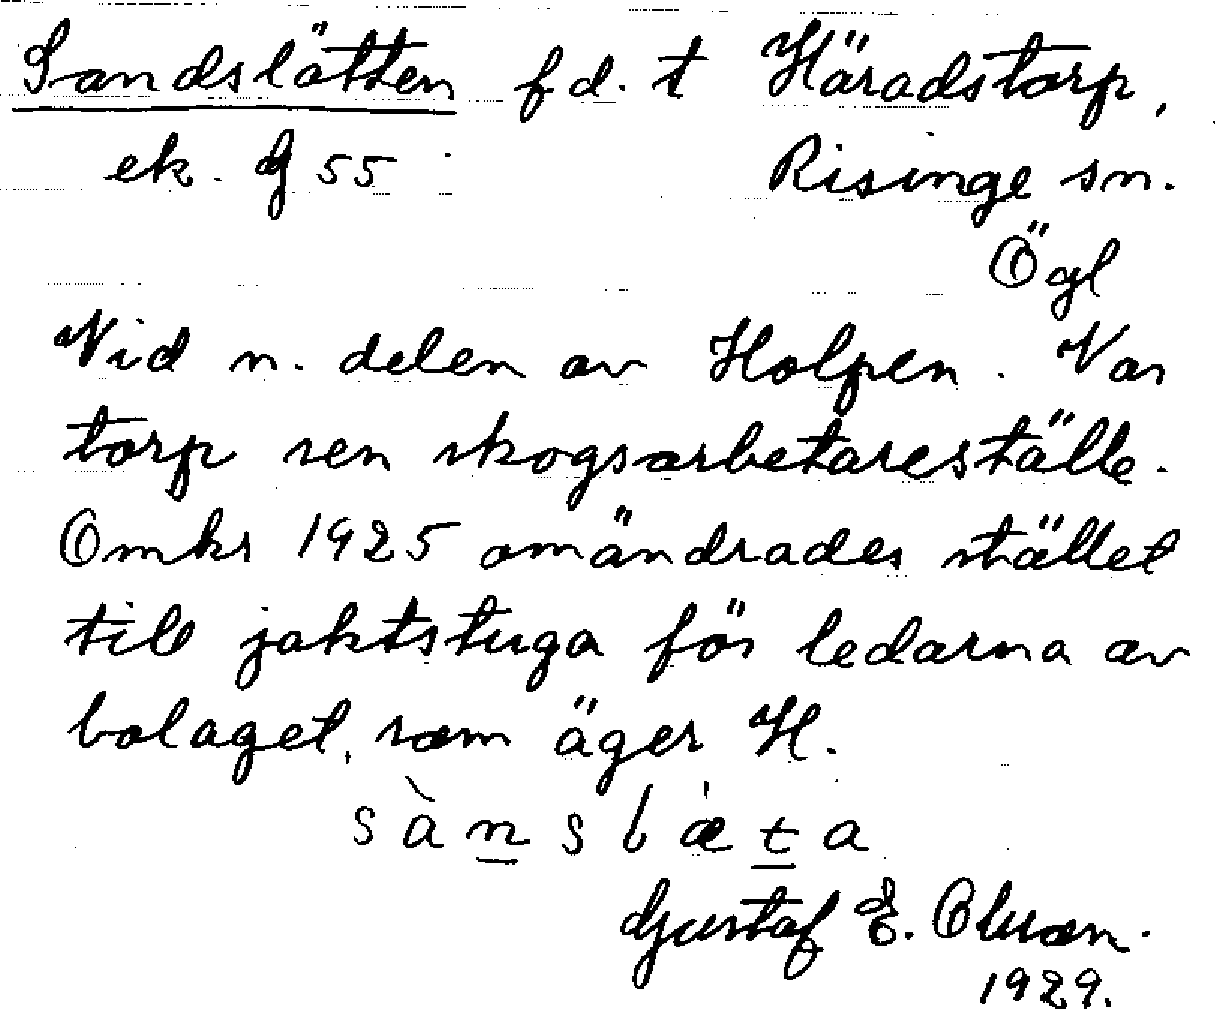 Sandslätten fd. t Häradstorp,
ek. G 55 Risinge sn.
Ögl
Vid n. delen av Holpen. Var
torp sen skogsarbetareställe.
Omkr 1925 omändrades stället
till jaktstuga för ledarna av
bolaget, som äger H.
sànslæta
Gustaf E. Olsson.
1929.